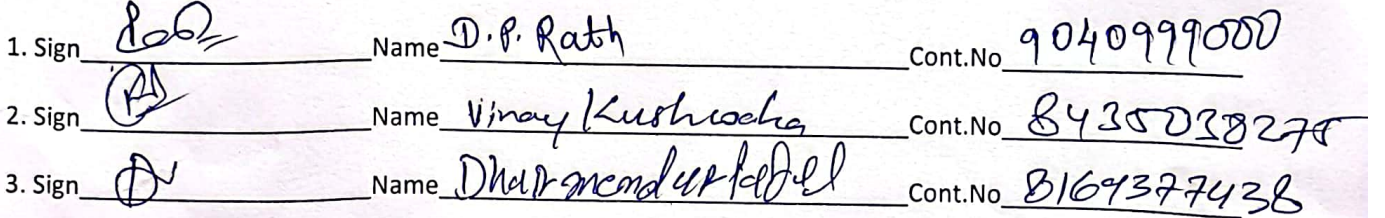 1. Sign Name D.P. Rath Cont.No 9040999000
2. Sign Name Vinay Kushwaha Cont.No 8435038275
3. Sign Name Cont.No 8169377438